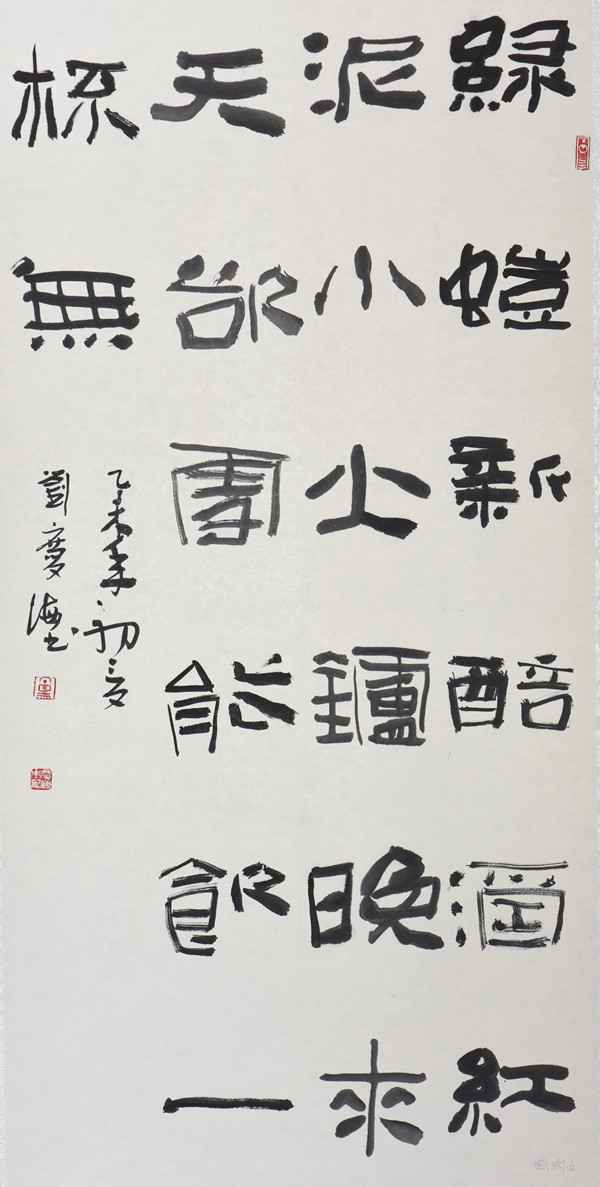 綠螘新醅酒紅
泥小火鑪晚來
天欲雪能飲一
杯無
乙未年初夏
劉慶海书